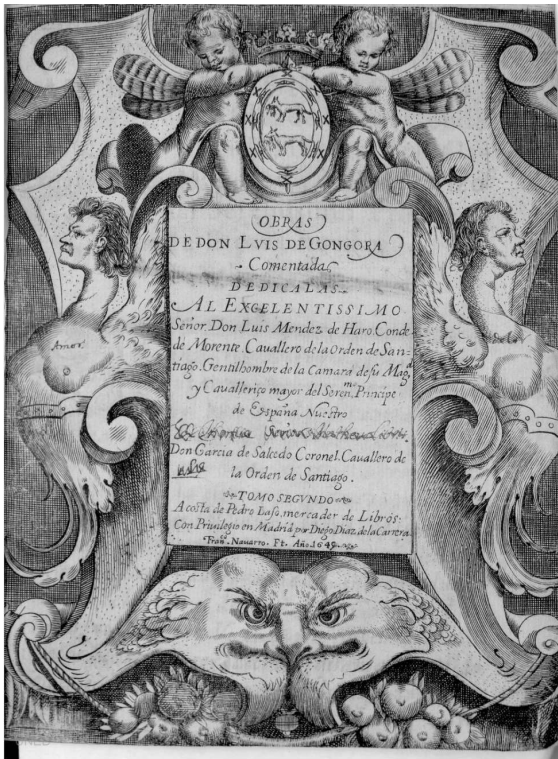 OBRAS
DE DON LVIS DE GONGORA
Comentadas
DEDICALAS
AL EXCELENTISSIMO
Señor. Don Luis Mendez de Haro. Conde
de Morente. Cavallero de la Orden de San=
tiago. Gentilhombre de la Camara de su Magd
y Cavallerico mayor del Serenmo. Principe
de España Nuestro
Amor.
Don Garcia de Salcedo Coronel. Cavallero de
la Orden de Santiago.
TOMO SEGVNDO
A costa de Pedro Laso, mercader de Libros:
Con Privilegio en Madrid por Diego Diaz de la Carrera
Franco. Navarro. Ft. Año. 1648.